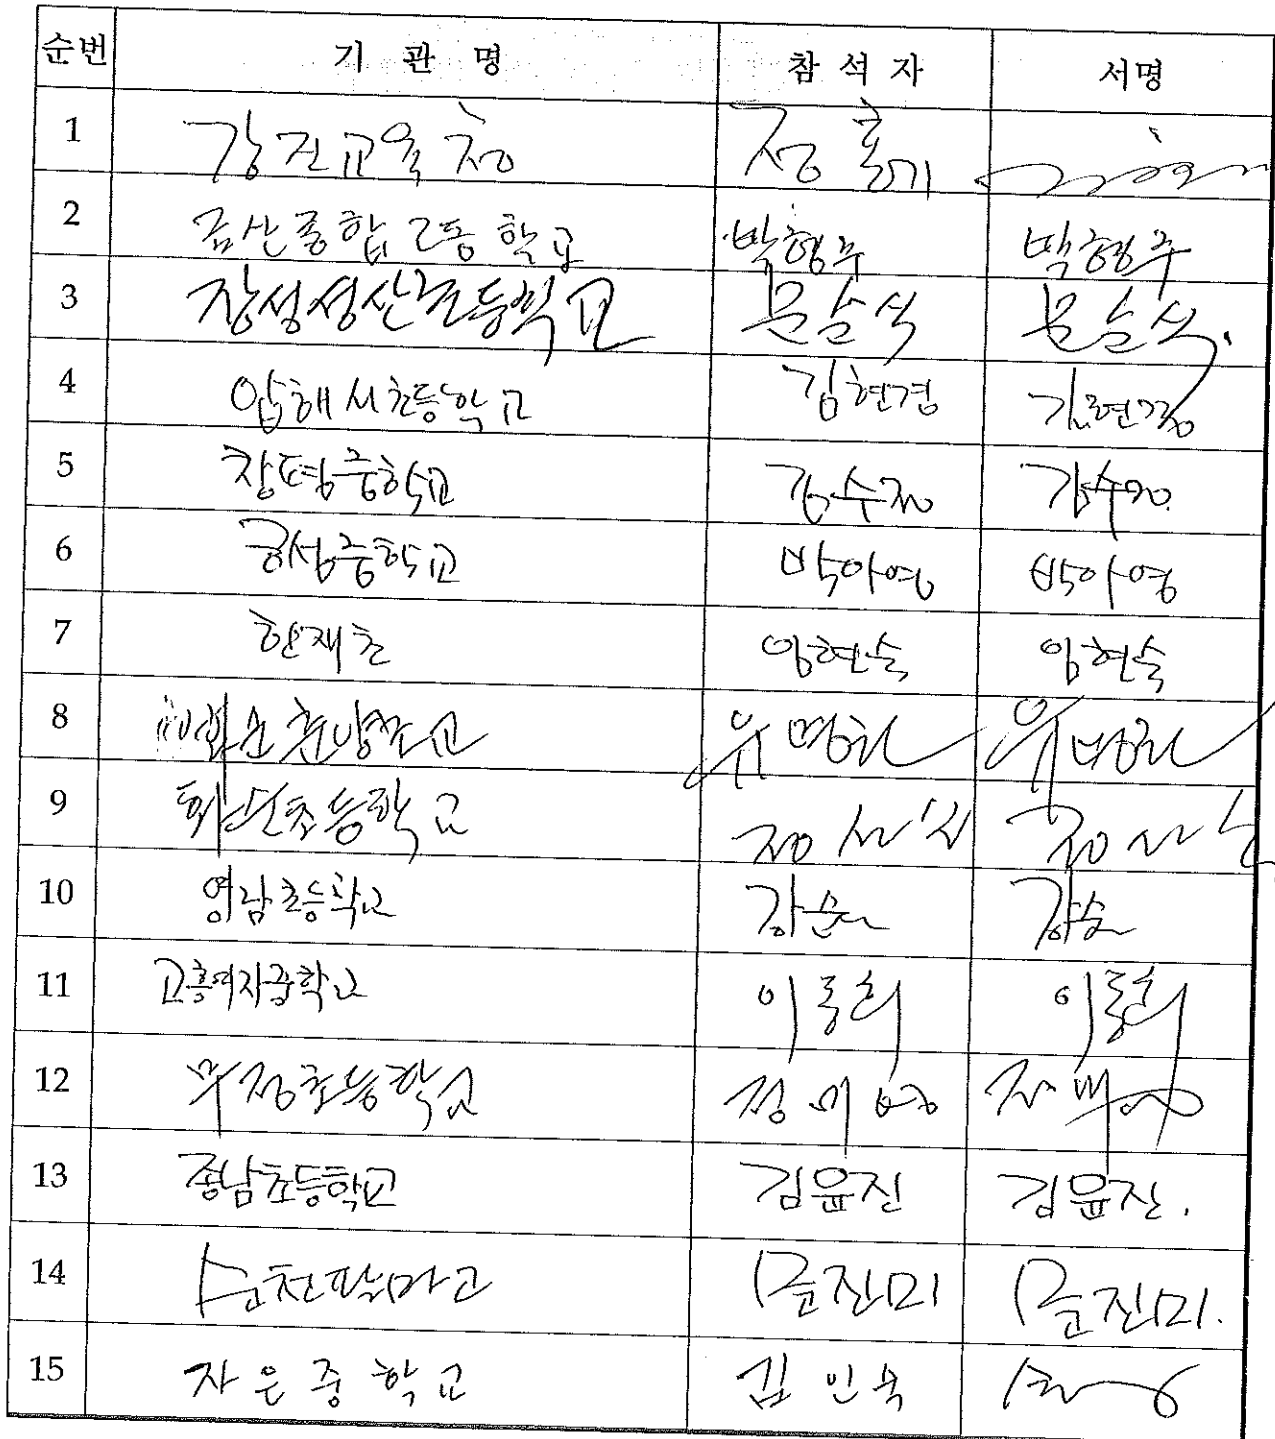 순번 기 관 명 참 석 자 서명
1 강진교육청 정홍기
2 금산종합고등학교 박형주 박형주
3 장성성산초등학교 문승석 문승석.
4 압해서초등학교 김현경 김현경
5 창평중학교 김수정 김수정.
6 곡성중학교 박아영 박아영
7 한재초 임현숙 임현숙
8 화순춘양초교 유명천 유명천
9 화순초등학교
10 영남초등학교 강순
11 고흥여자중학교 이동희 이동희
12 무정초등학교 정미영
13 종남초등학교 김윤진 김윤진.
14 순천팔마고 문진미 문진미.
15 자은중학교 김인숙